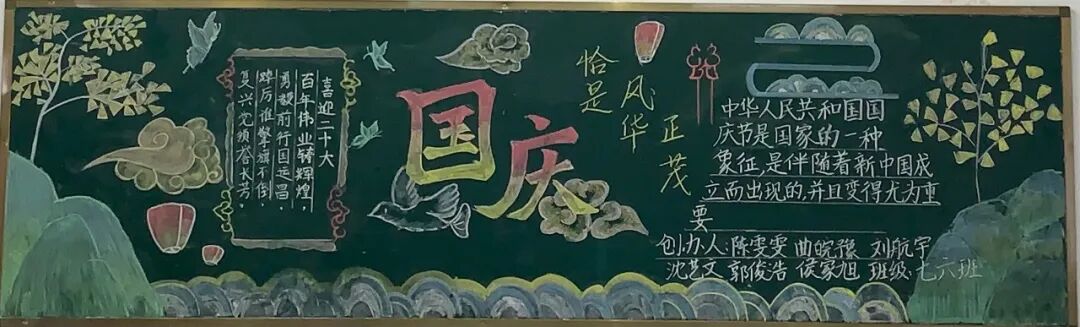 喜迎二十大
百年伟业铸辉煌，
勇毅前行国运昌，
踔厉谁擎旗不倒，
复兴党领誉长芳。
国庆
恰是
风华
正茂
中华人民共和国国
庆节是国家的一种
象征,是伴随着新中国成
立而出现的,并且变得尤为重
要
创办人:陈雯雯 曲皖豫 刘航宇
沈艺文 郭俊浩 侯家旭 班级:七六班